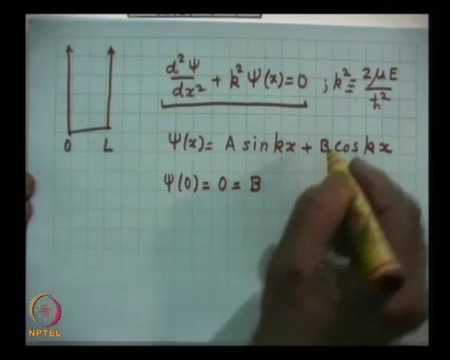 d²Ψ/dx² + k²Ψ(x)=0 ; k² ≡ 2μE/ħ²
0 L
Ψ(x)= A sinkx + B coskx
Ψ(0) = 0 = B
NPTEL